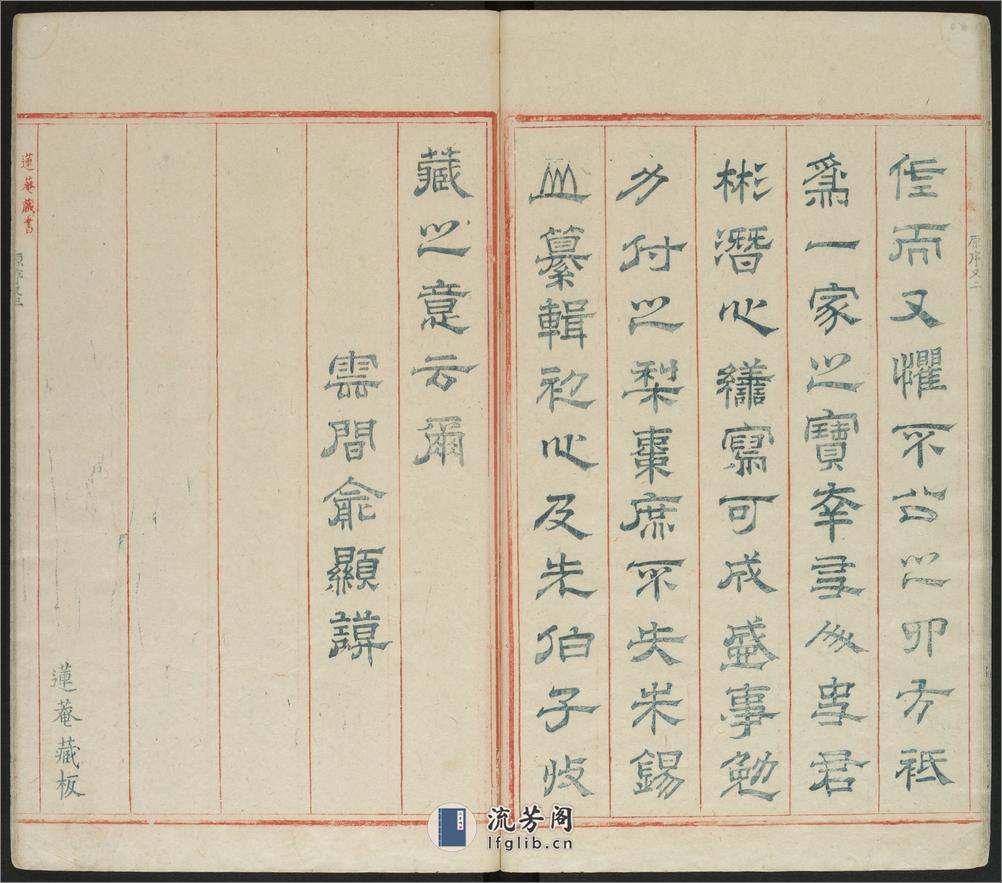 原序又二
而又懼不公之四方祗
爲一家之寶幸君
彬潛心繕寫可成盛事勉
力付之梨棗庶不失朱錫
山纂輯初心及朱伯子收
藏之意云爾
雲間俞顯謨
蓮菴藏板
蓮菴藏書
原序又三
流芳阁
lfglib.cn